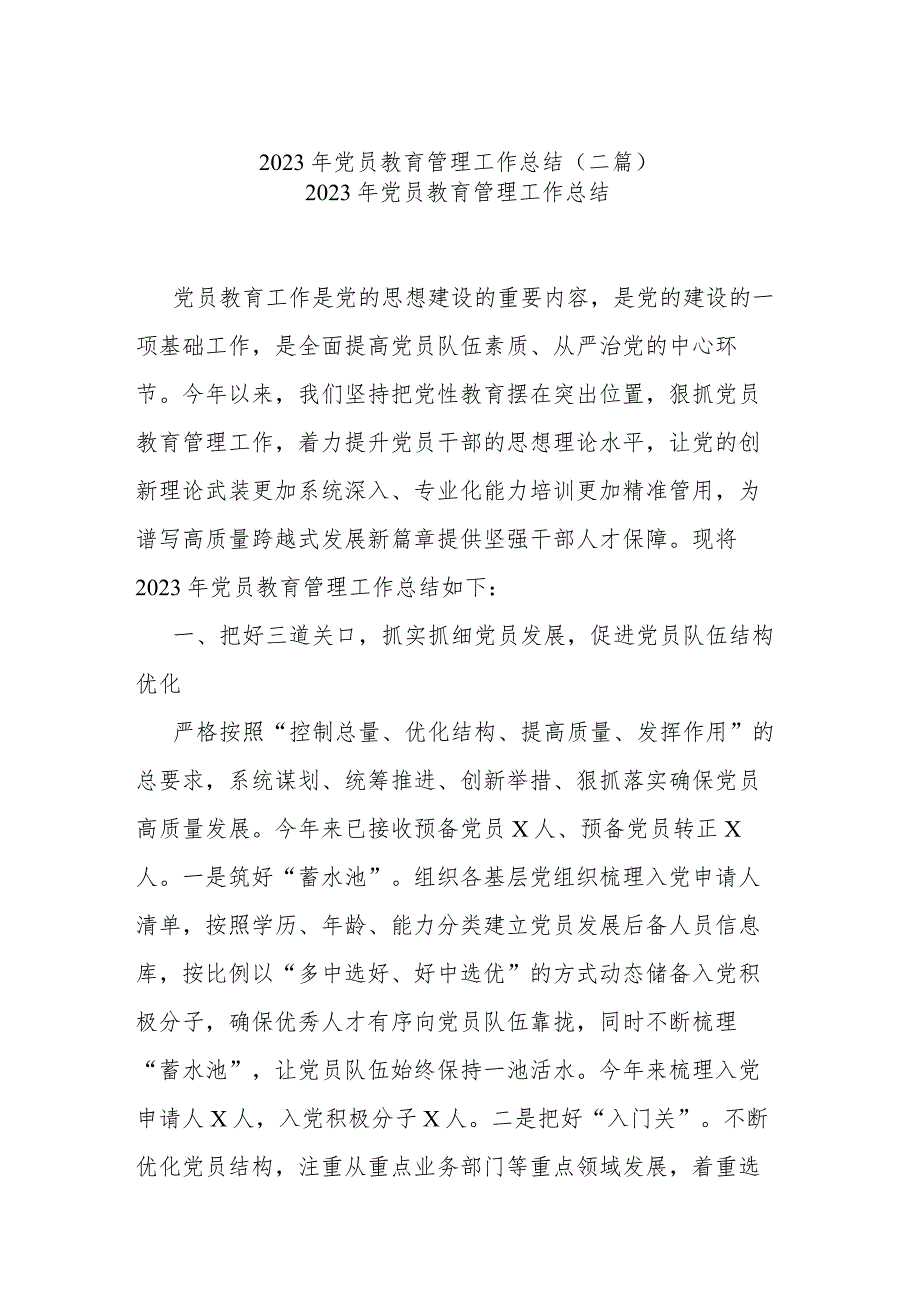 2023 年党员教育管理工作总结（二篇）
2023 年党员教育管理工作总结
党员教育工作是党的思想建设的重要内容，是党的建设的一
项基础工作，是全面提高党员队伍素质、从严治党的中心环
节。今年以来，我们坚持把党性教育摆在突出位置，狠抓党员
教育管理工作，着力提升党员干部的思想理论水平，让党的创
新理论武装更加系统深入、专业化能力培训更加精准管用，为
谱写高质量跨越式发展新篇章提供坚强干部人才保障。现将
2023 年党员教育管理工作总结如下：
一、把好三道关口，抓实抓细党员发展，促进党员队伍结构
优化
严格按照“控制总量、优化结构、提高质量、发挥作用”的
总要求，系统谋划、统筹推进、创新举措、狠抓落实确保党员
高质量发展。今年来已接收预备党员 X 人、预备党员转正 X
人。一是筑好“蓄水池”。组织各基层党组织梳理入党申请人
清单，按照学历、年龄、能力分类建立党员发展后备人员信息
库，按比例以“多中选好、好中选优”的方式动态储备入党积
极分子，确保优秀人才有序向党员队伍靠拢，同时不断梳理
“蓄水池”，让党员队伍始终保持一池活水。今年来梳理入党
申请人 X 人，入党积极分子 X 人。二是把好“入门关”。不断
优化党员结构，注重从重点业务部门等重点领域发展，着重选